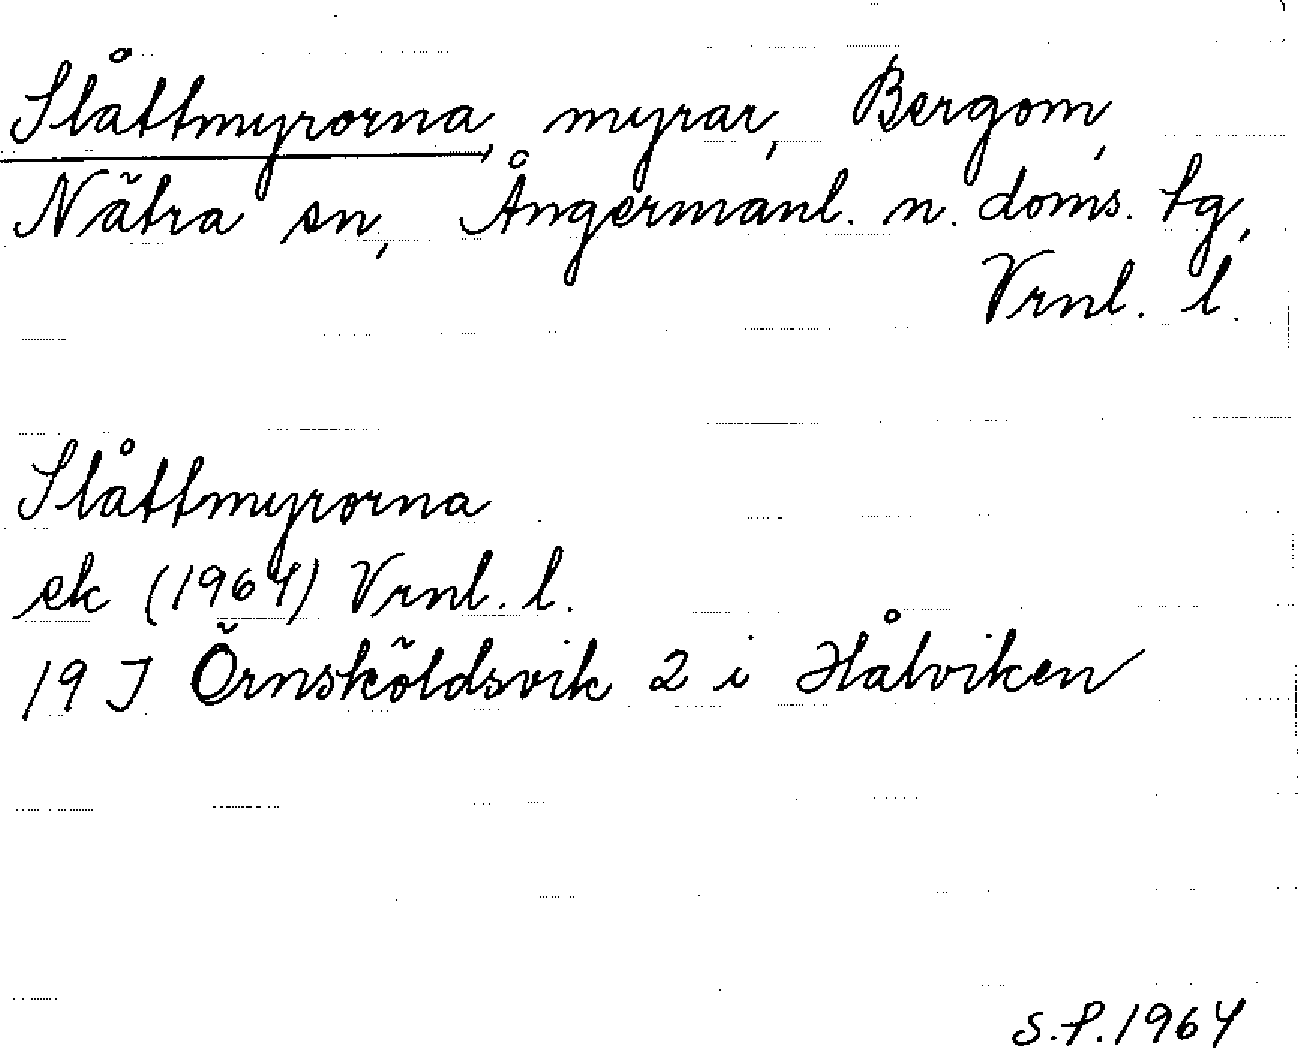 Slåttmyrorna, myrar, Bergom,
Nätra sn, Ångermanl. n. doms. tg,
Vrnl. l.
Slåttmyrorna
ek (1964) Vrnl. l.
19 J Örnsköldsvik 2 i Hålviken
S.P. 1964